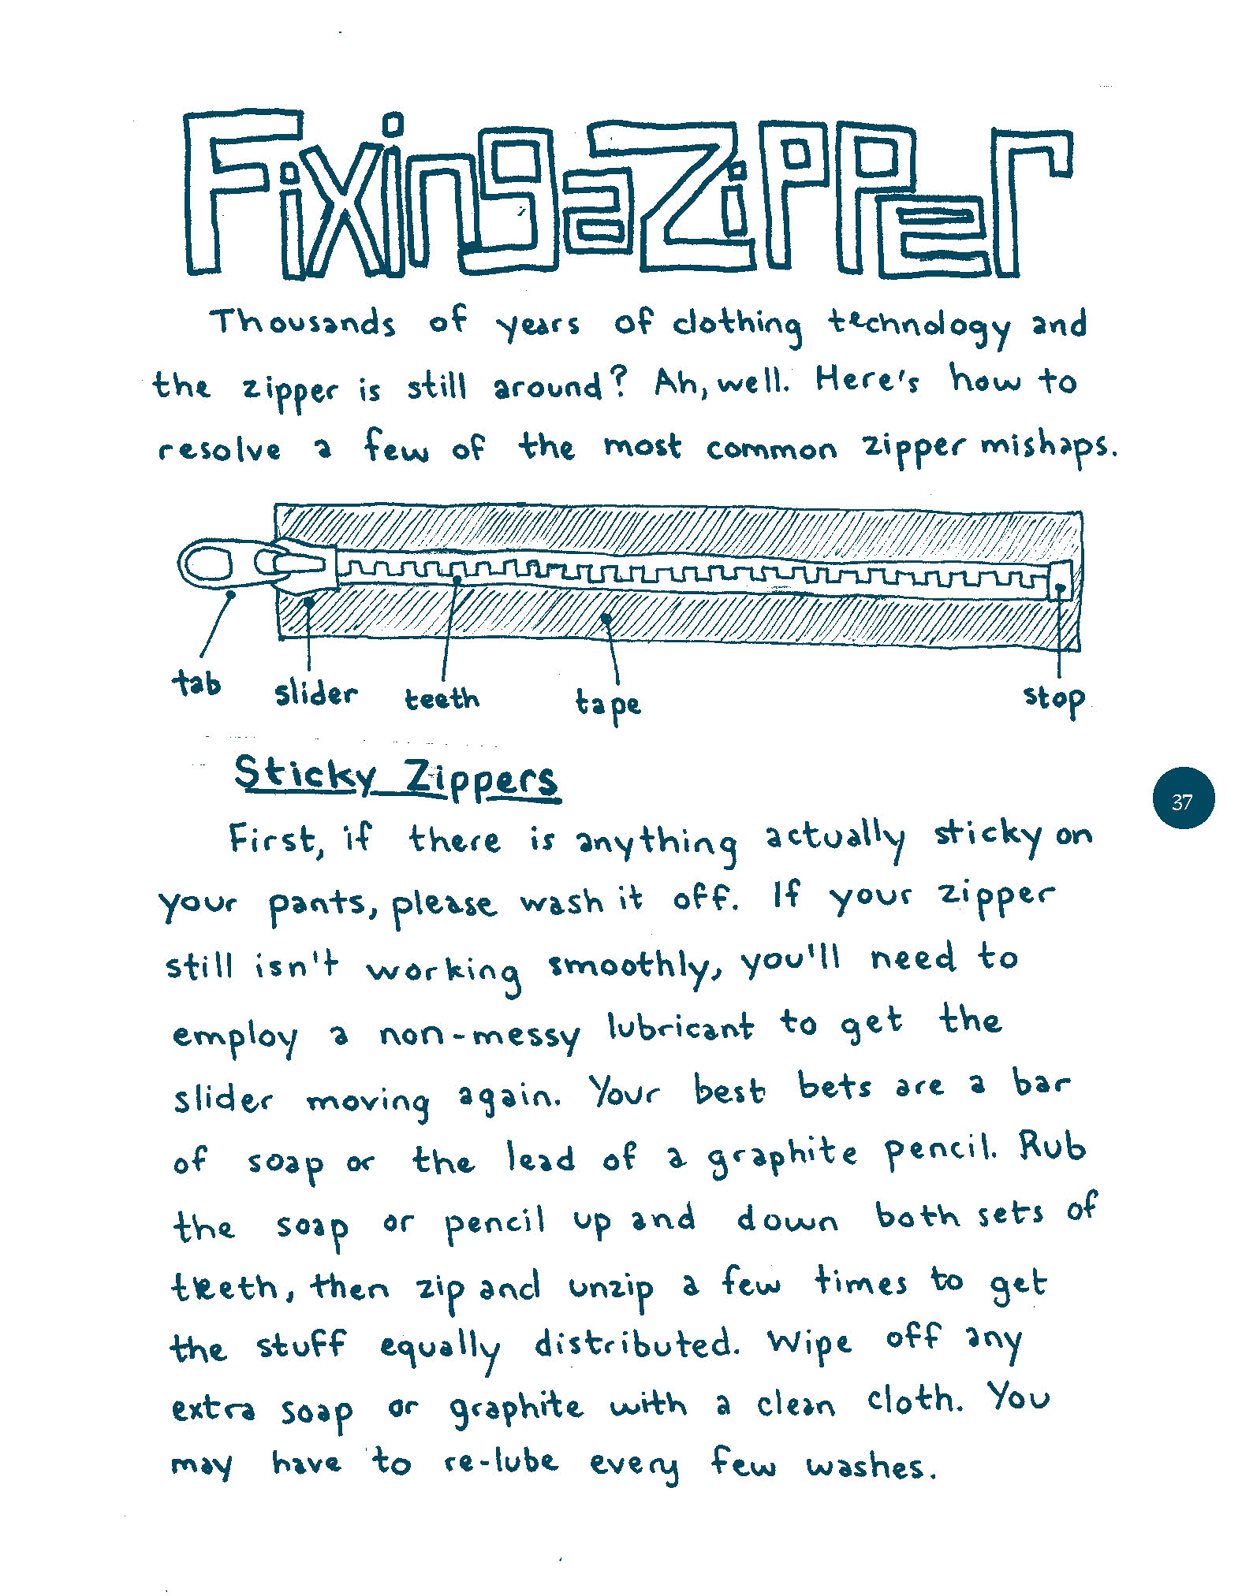 Fixing a Zipper
Thousands of years of clothing technology and
the zipper is still around? Ah, well. Here's how to
resolve a few of the most common zipper mishaps.
tab
slider
teeth
tape
stop
Sticky Zippers
37
First, if there is anything actually sticky on
your pants, please wash it off. If your zipper
still isn't working smoothly, you'll need to
employ a non-messy lubricant to get the
slider moving again. Your best bets are a bar
of soap or the lead of a graphite pencil. Rub
the soap or pencil up and down both sets of
teeth, then zip and unzip a few times to get
the stuff equally distributed. Wipe off any
extra soap or graphite with a clean cloth. You
may have to re-lube every few washes.